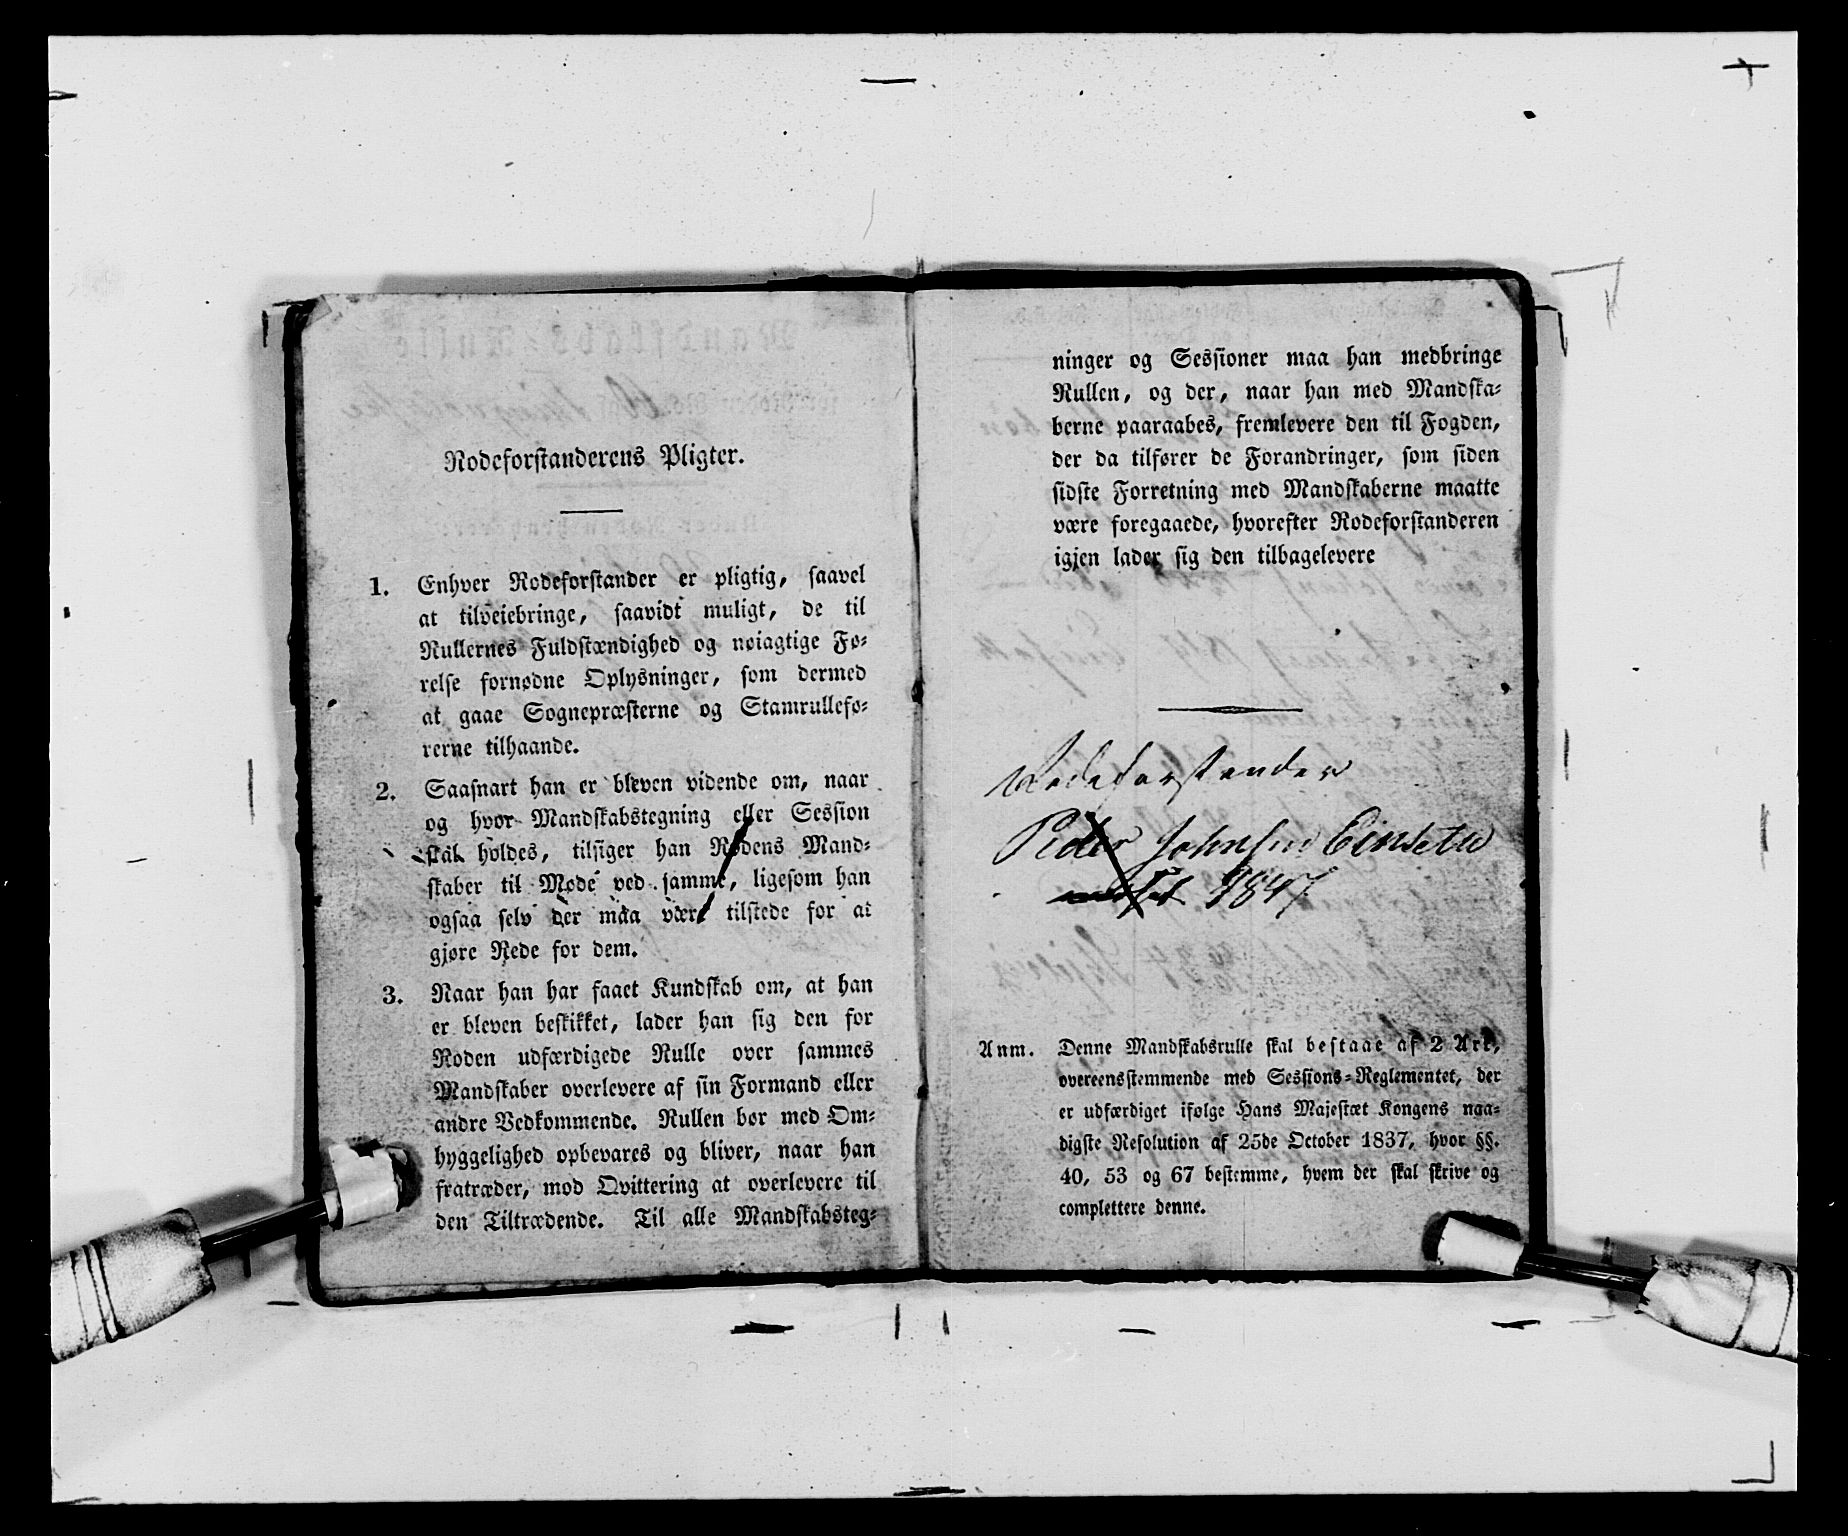 Rodeforstanderens Pligter.
1. Enhver Rodeforstander er pligtig, saavel
at tilveiebringe, saavidt muligt, de til
Rullernes Fuldstændighed og nøiagtige Fø-
relse fornødne Oplysninger, som dermed
at gaae Sognepræsterne og Stamrullefø-
rerne tilhaande.
2. Saasnart han er bleven vidende om, naar
og hvor Mandskabstegning eller Session
skal holdes, tilsiger han Rodens Mand-
skaber til Møde ved samme, ligesom han
ogsaa selv der maa være tilstede for at
gjøre Rede for dem.
3. Naar han har faaet Kundskab om, at han
er bleven beskikket, lader han sig den for
Roden udfærdigede Rulle over sammes
Mandskaber overlevere af sin Formand eller
andre Vedkommende. Rullen bør med Om-
hyggelighed opbevares og bliver, naar han
fratræder, mod Qvittering at overlevere til
den Tiltrædende. Til alle Mandskabsteg-
ninger og Sessioner maa han medbringe
Rullen, og der, naar han med Mandska-
berne paaraabes, fremlevere den til Fogden,
der da tilfører de Forandringer, som siden
sidste Forretning med Mandskaberne maatte
være foregaaede, hvorefter Rodeforstanderen
igjen lader sig den tilbagelevere
Rodeforstander
Peder Johnsen Einsetu
1847
Anm. Denne Mandskabsrulle skal bestaae af 2 Ark,
overeensstemmende med Sessions-Reglementet, der
er udfærdiget ifølge Hans Majestæt Kongens naa-
digste Resolution af 25de October 1837, hvor §§.
40, 53 og 67 bestemme, hvem der skal skrive og
complettere denne.